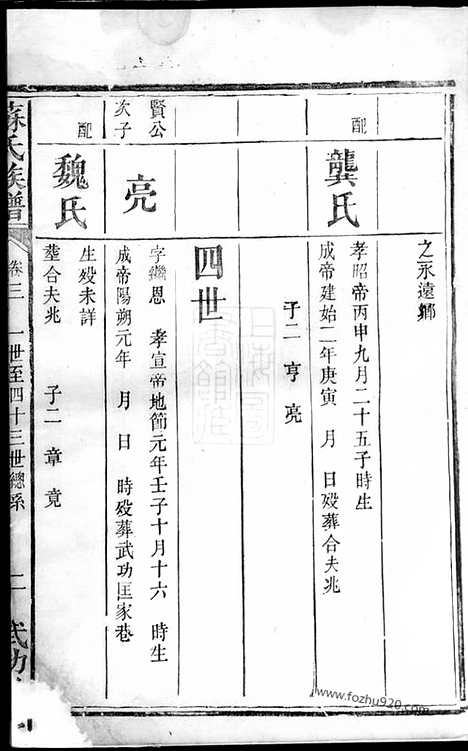 之永遠鄉
配
龔氏
孝昭帝丙申九月二十五子時生
成帝建始二年庚寅　月　日殁葬合夫兆
子二　亨　亮
四世
賢公
次子
亮
字繼恩　孝宣帝地節元年壬子十月十六　時生
成帝陽朔元年　月　日　時殁葬武功匡家巷
配
魏氏
生殁未詳
塟合夫兆　子二　章　竟
蘇氏族譜
卷三　一世至四十三世總系　二　武功
www.fozhu920.com